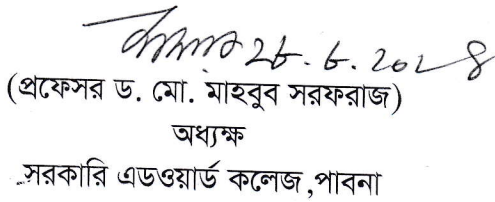 ২৮.৮.২০২৪
(প্রফেসর ড. মো. মাহবুব সরফরাজ)
অধ্যক্ষ
সরকারি এডওয়ার্ড কলেজ,পাবনা